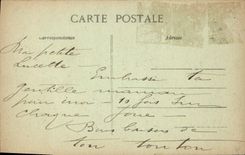 CARTE POSTALE
Correspondance
Adresse
Ma petite
Lucette
Embrasse ta
gentille maman
pour moi - 10 fois sur
chaque joue
Bons baisers de
ton tonton